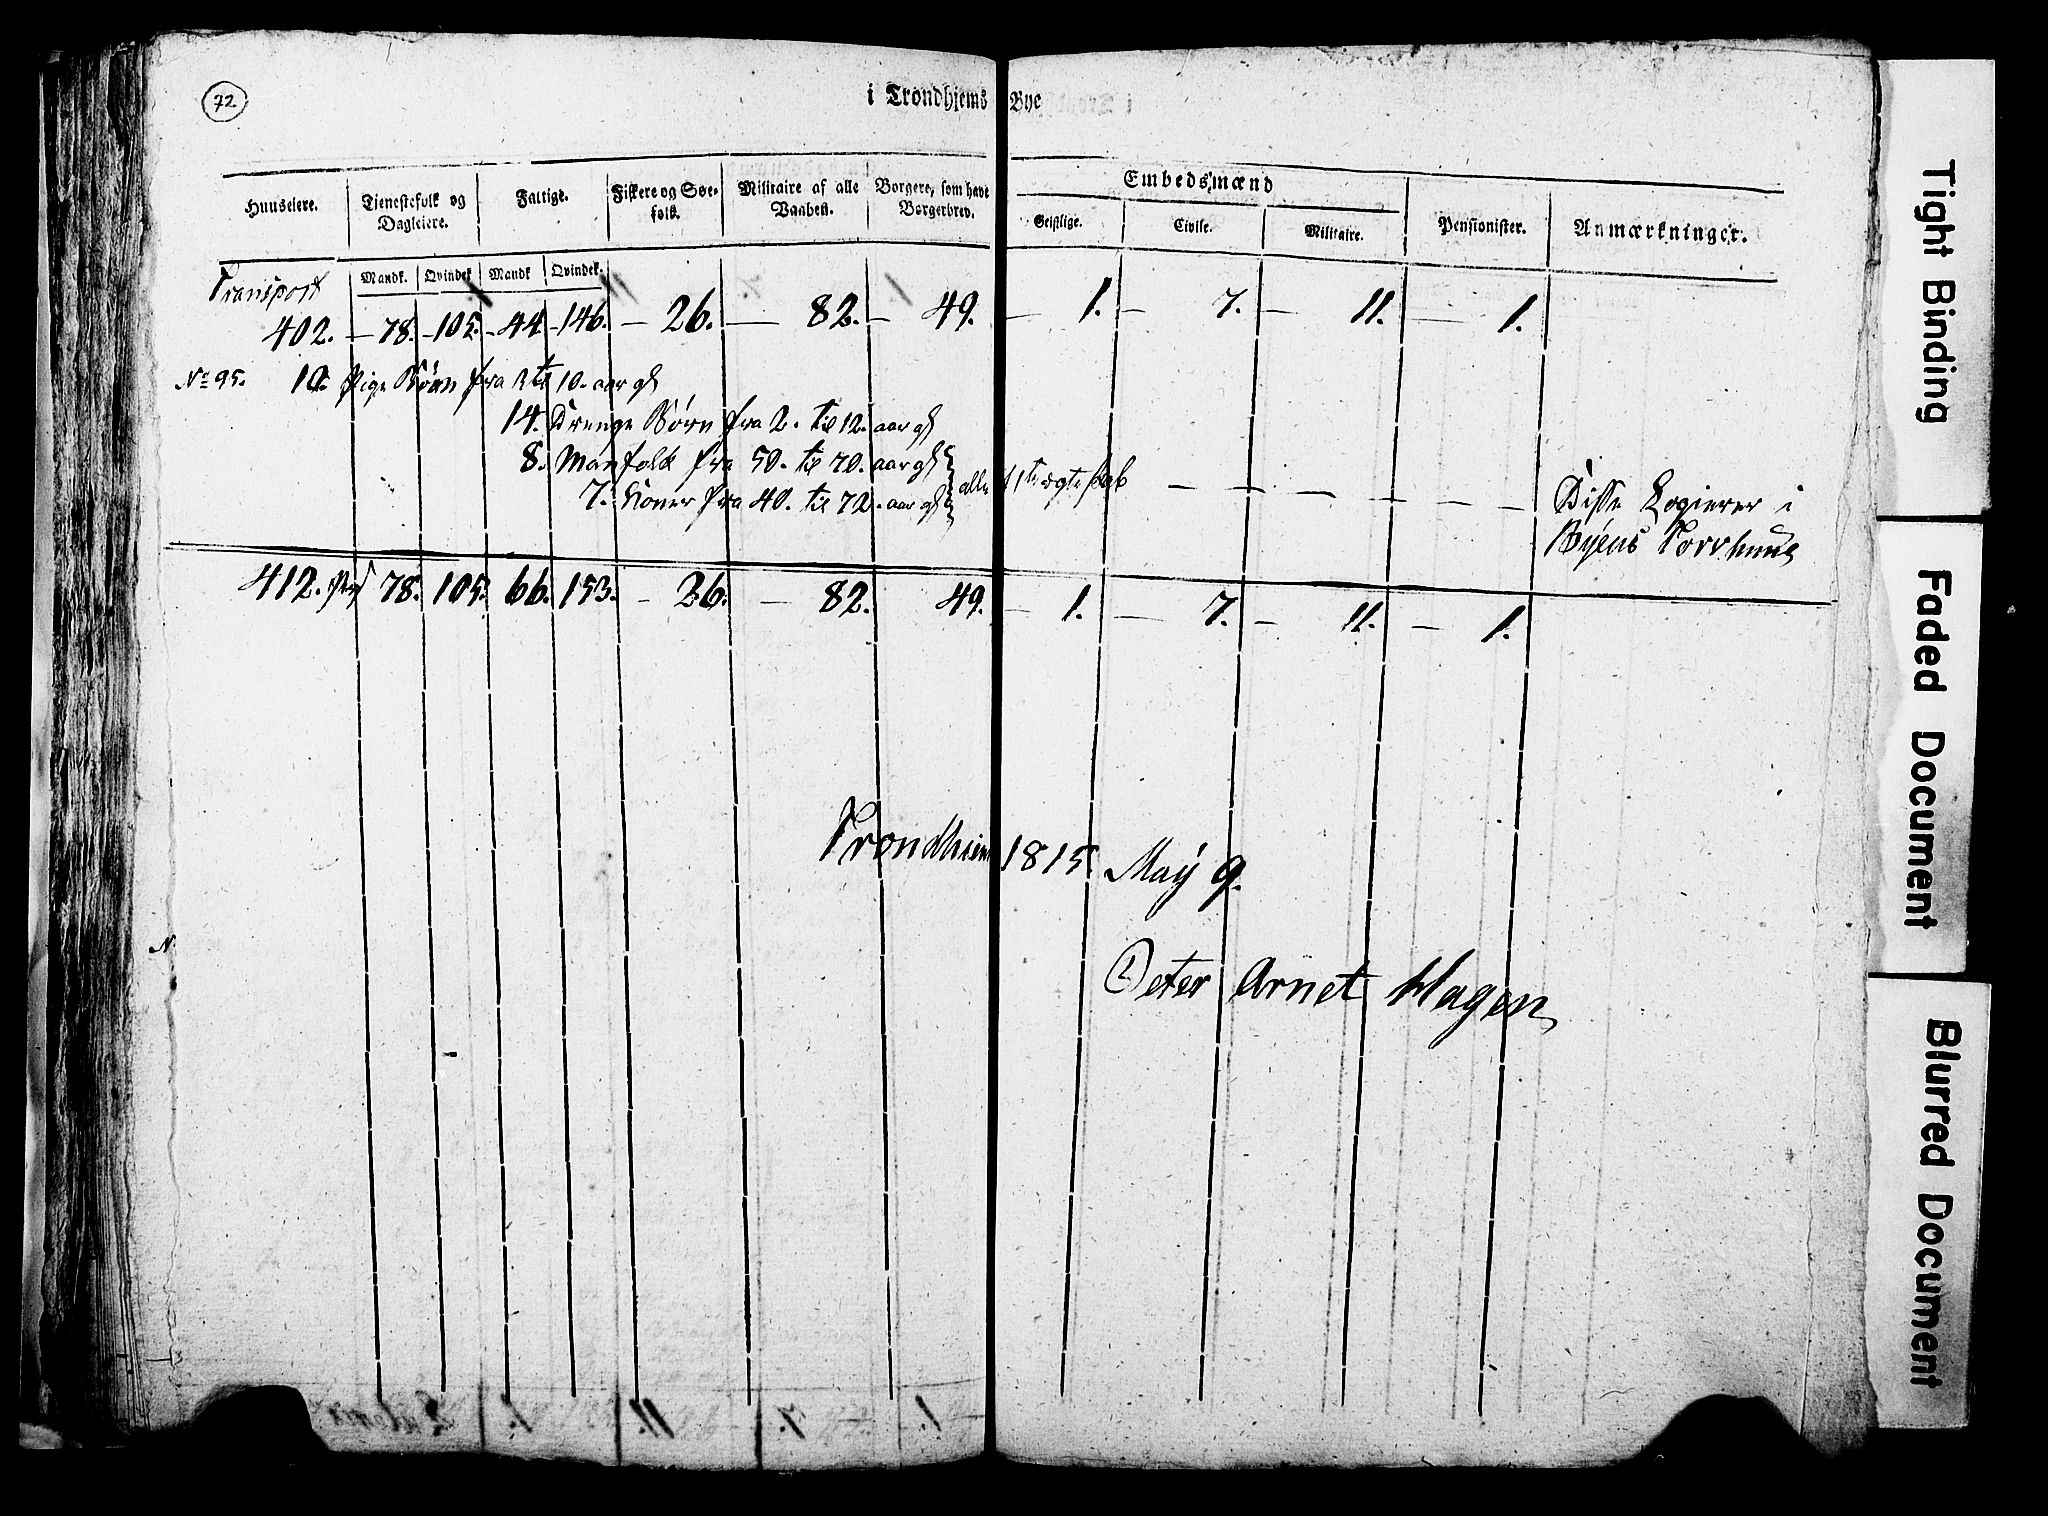 72
i Trondhjems Bye
Huuseiere. Tienestefolk og Dagleiere. Fattige. Fiskere og Søe-folk. Militaire af alle Vaaben. Borgere, som have Borgerbrev. Embedsmænd
Geistlige. Civile. Militaire. Pensionister. Anmærkninger.
Mandk. Qvindek. Mandk Qvindek.
Transport
402. — 78. — 105. — 44. — 146. — 26. — 82. — 49. — 1. — 7. — 11. — 1.
No 95. 10. Pige Børn fra 3 til 10. aar gl
14. Drenge Børn fra 2. til 12. aar gl
8. Manfolk fra 50. til 70. aar gl
7. Koner fra 40. til 72. aar gl alle
Disse Logierer i
Byens
412. 78. 105. 66. 153. — 26. — 82. 49. — 1. — 7. — 11. — 1.
Trondhiem 1815 May 9.
Peter Arnet Hagen
Tight Binding
Faded Document
Blurred Document